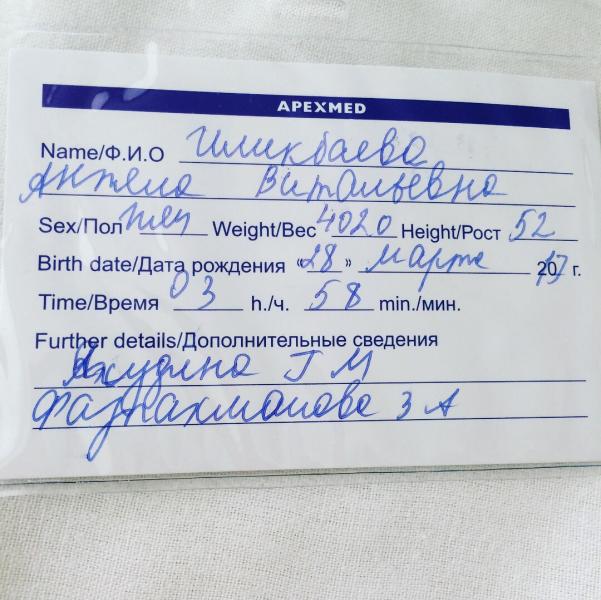 APEXMED
Name/Ф.И.О Иликбаева
Анжела Витальевна
Sex/Пол Weight/Вес 4020 Height/Рост 52
Birth date/Дата рождения "28" марта 2017 г.
Time/Время 03 h./ч. 58 min./мин.
Further details/Дополнительные сведения
Яхудина Г М
З А